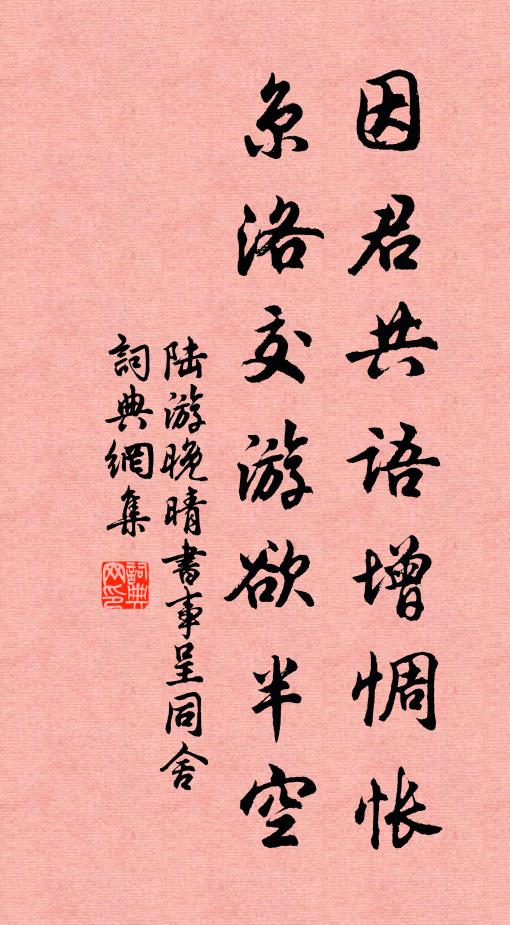 因君共语增惆怅
京洛交游欲半空
陆游晚晴书事呈同舍
詞典網集
詞典网印